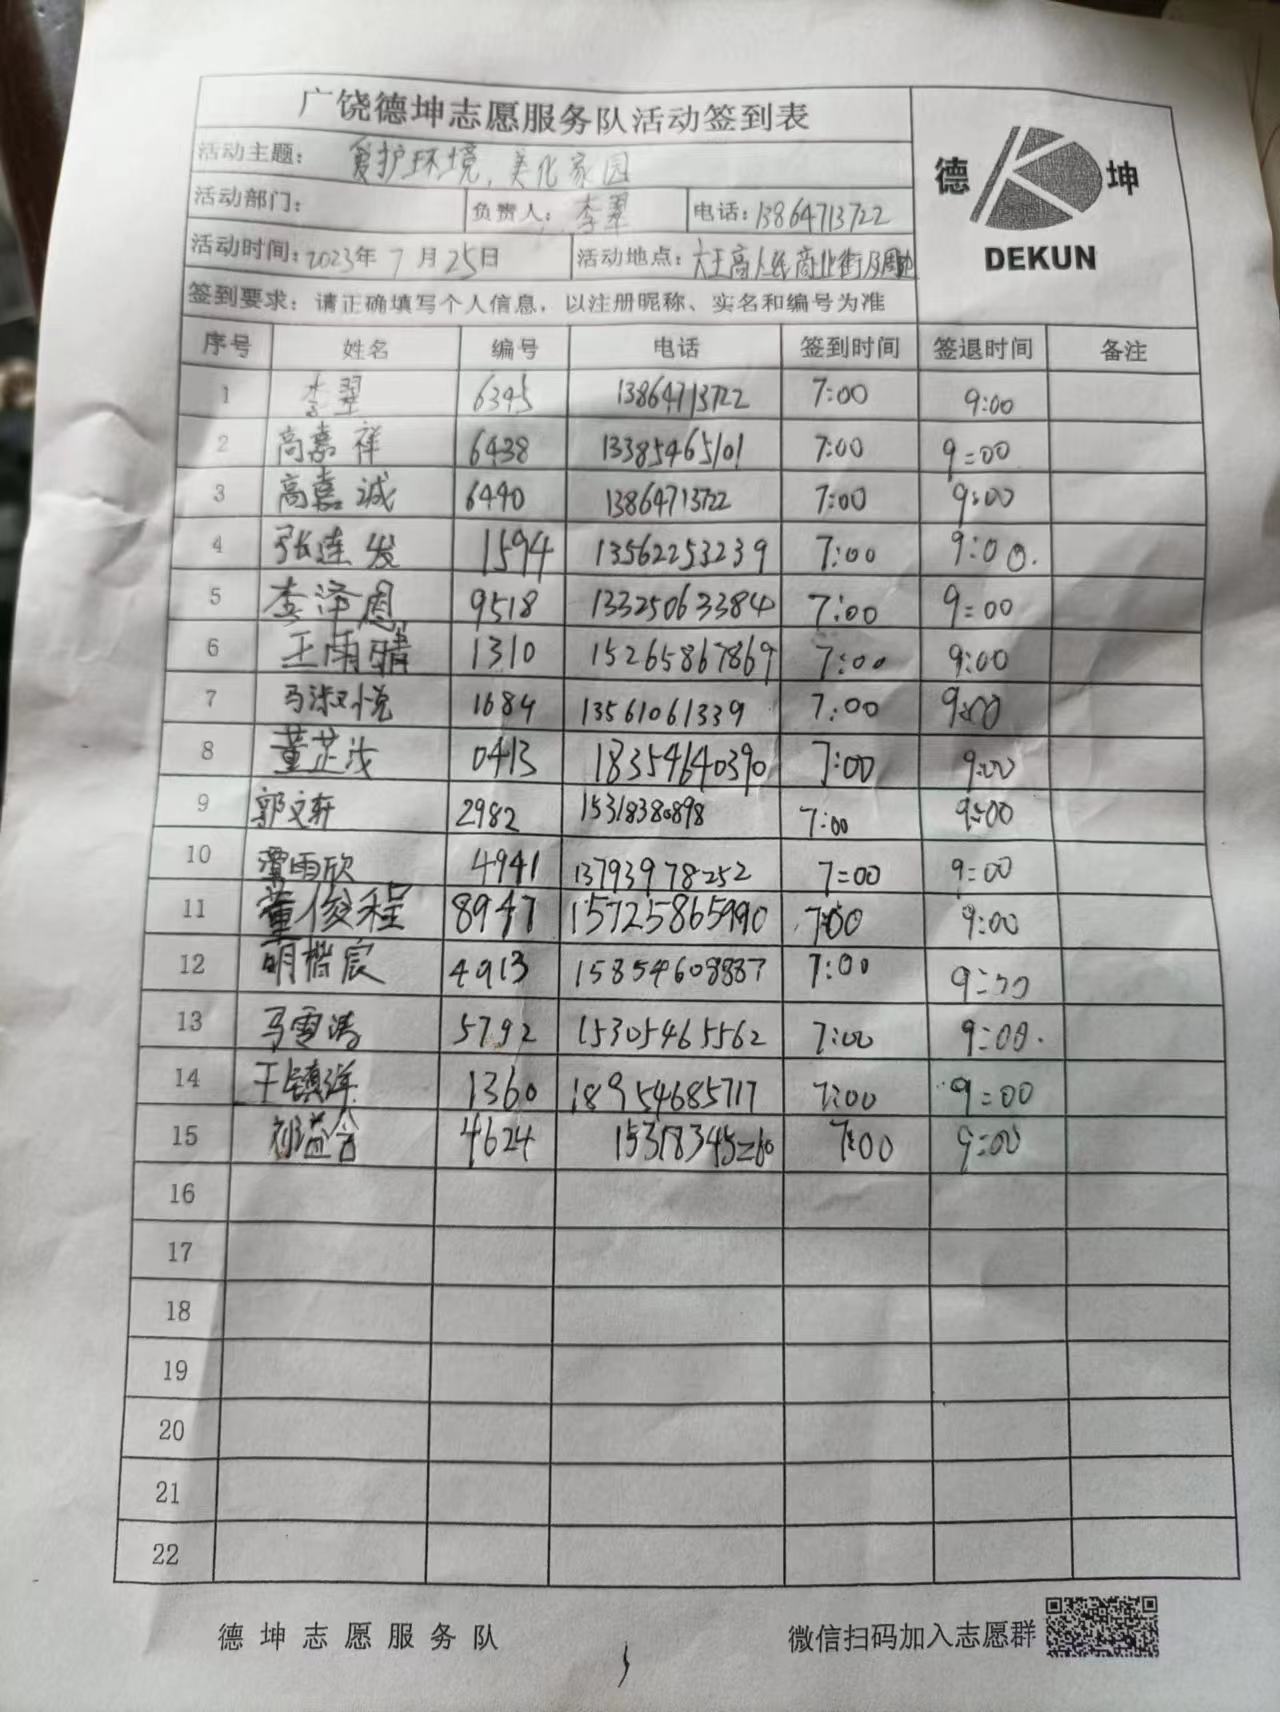 广饶德坤志愿服务队活动签到表
德 坤
DEKUN
活动主题: 爱护环境,美化家园
活动部门: 负责人: 李翠 电话: 13864713722
活动时间: 2023年 7月 25日 活动地点: 大王高人民商业街及周边
签到要求: 请正确填写个人信息, 以注册昵称、实名和编号为准
序号 姓名 编号 电话 签到时间 签退时间 备注
1 李翠 6345 13864713722 7:00 9:00
2 高嘉祥 6438 13385465101 7:00 9:00
3 高嘉诚 6440 13864713722 7:00 9:00
4 张连发 1594 13562253239 7:00 9:00.
5 李泽恩 9518 13325063384 7:00 9:00
6 王雨晴 1310 15265867869 7:00 9:00
7 马淑悦 1684 13561061339 7:00 9:00
8 董芷汐 0413 18354640390 7:00 9:00
9 郭文轩 2982 15318380898 7:00 9:00
10 雨欣 4941 13793978252 7:00 9:00
11 董俊程 8947 15725865990 7:00 9:00
12 明楷宸 4913 15854608887 7:00 9:00
13 马雪涛 5792 15305465562 7:00 9:00.
14 王镇洋 1360 18954685717 7:00 9:00
15 益合 4624 15318345260 7:00 9:00
16
17
18
19
20
21
22
德坤志愿服务队 微信扫码加入志愿群